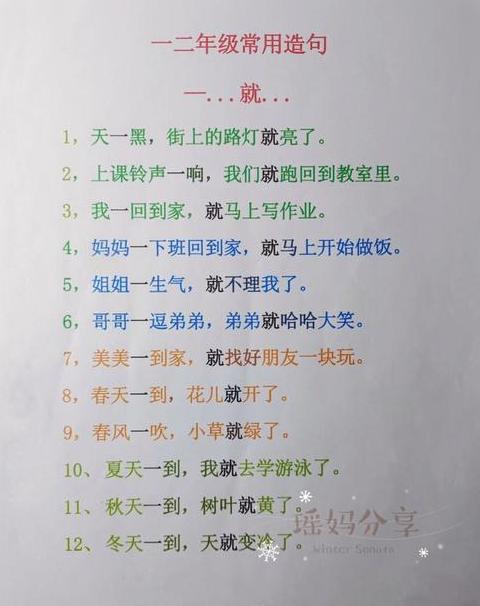 一二年级常用造句
一...就...
1，天一黑，街上的路灯就亮了。
2，上课铃声一响，我们就跑回到教室里。
3，我一回到家，就马上写作业。
4，妈妈一下班回到家，就马上开始做饭。
5，姐姐一生气，就不理我了。
6，哥哥一逗弟弟，弟弟就哈哈大笑。
7，美美一到家，就找好朋友一块玩。
8，春天一到，花儿就开了。
9，春风一吹，小草就绿了。
10、夏天一到，我就去学游泳了。
11、秋天一到，树叶就黄了。
12、冬天一到，天就变冷了。
瑶妈分享
Winter Sonata